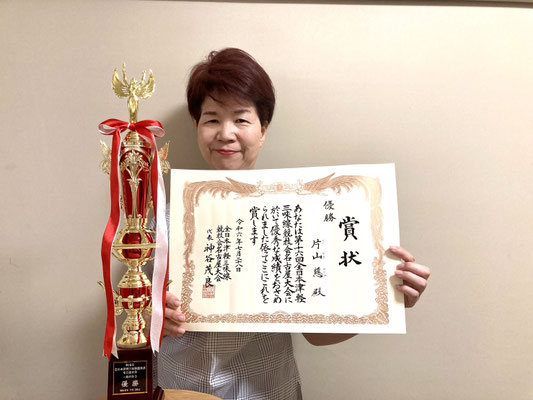 賞状
優勝
片山慈殿
あなたは第十六回全日本津軽
三味線競技会名古屋大会に
於いて優秀な成績をおさめ
られました依てここにこれを
賞します
令和六年七月二十八日
全日本津軽三味線
競技会名古屋大会
代表 神谷茂良
優勝